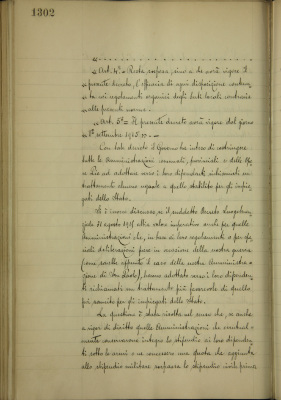 1302
" Art. 4° = Resta sospesa, sino a che avrà vigore il
" presente decreto, l'efficacia di ogni disposizione contenu
" ta nei regolamenti organici degli Enti locali contraria
" alle presenti norme. =
" Art. 5° = Il presente decreto avrà vigore dal giorno
" 1° settembre 1915 " =
Con tale decreto il Governo ha inteso di costringere
tutte le Amministrazioni comunali, provinciali e delle Ope
re Pie ad adottare verso i loro dipendenti richiamati un
trattamento almeno uguale a quello stabilito per gli impie
gati dello Stato.
Si è invece discusso se il suddetto Decreto Luogotenen
ziale 31 agosto 1915 abbia valore imperativo anche per quelle
Amministrazioni che, in base ai loro regolamenti o per spe
ciali deliberazioni prese in occasione della nostra guerra
(come sarebbe appunto il caso della nostra Amministra
zione di San Paolo), hanno adottato verso i loro dipenden
ti richiamati un trattamento più favorevole di quello
poi sancito per gli impiegati dello Stato.
La questione è stata risolta nel senso che, se anche
a rigor di diritto quelle Amministrazioni che
mente conservarono integro lo stipendio ai loro dipenden
ti sotto le armi o ne concessero una quota che aggiunta
allo stipendio militare sorpassa lo stipendio civile prima